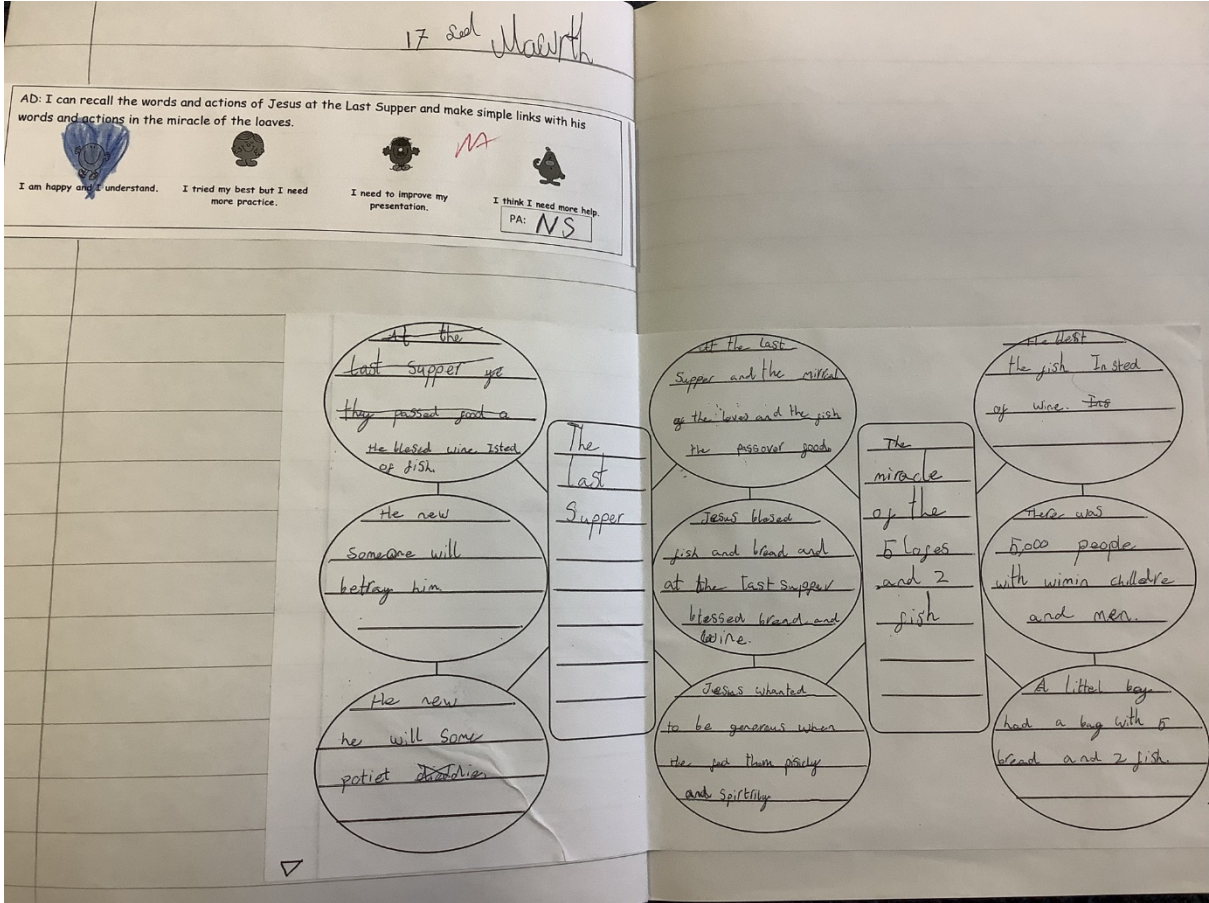 17 eed Mawrth
AD: I can recall the words and actions of Jesus at the Last Supper and make simple links with his
words and actions in the miracle of the loaves.
I am happy and I understand.
I tried my best but I need
more practice.
I need to improve my
presentation.
I think I need more help.
PA: NS
At the
Last Supper
they passed food a
He blesed wine Isted
of fish.
He new
Someone will
betray him
He new
he will Some
potiet
The
Last
Supper
At the Last
Supper and the mircal
of the loves and the fish
the passover food.
Jesus blesed
fish and bread and
at the last supper
blessed bread and
wine.
Jesus whanted
to be generous when
He fed them
and
The
miracle
of the
5 lofes
and 2
fish
He blest
the fish Insted
of wine. Ins
There was
5,000 people
with wimin chilldre
and men.
A littel boy
had a bag with 5
bread and 2 fish.